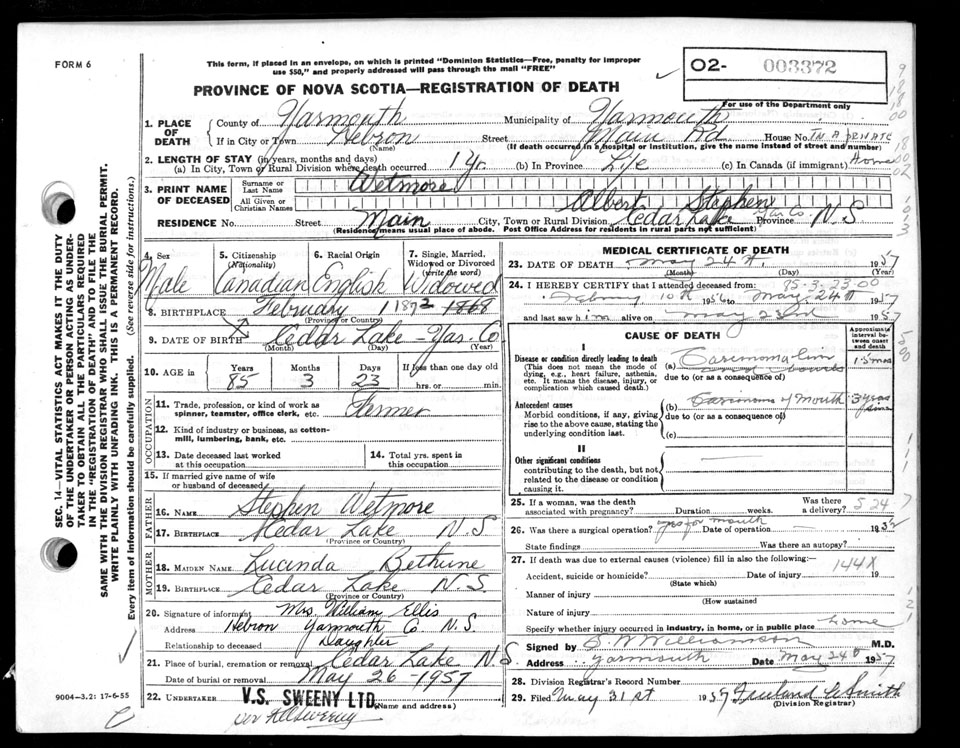 FORM 6
This form, if placed in an envelope, on which is printed "Dominion Statistics—Free, penalty for improper
use $50," and properly addressed will pass through the mail "FREE"
PROVINCE OF NOVA SCOTIA—REGISTRATION OF DEATH
O2- 003372
For use of the Department only
1. PLACE OF DEATH
County of Yarmouth Municipality of Yarmouth
If in City or Town Hebron (Name) Street Main Rd House No. IN A PRIVATE
(If death occurred in a hospital or institution, give the name instead of street and number)
Home
2. LENGTH OF STAY (in years, months and days)
(a) In City, Town or Rural Division where death occurred 1 Yr. (b) In Province Life (c) In Canada (if immigrant)
3. PRINT NAME OF DECEASED
Surname or Last Name Wetmore
All Given or Christian Names Albert Stephen
RESIDENCE No. Street Main City, Town or Rural Division Cedar Lake Yar Co. Province N.S
(Residence means usual place of abode. Post Office Address for residents in rural parts not sufficient)
4. Sex Male
5. Citizenship (Nationality) Canadian
6. Racial Origin English
7. Single, Married, Widowed or Divorced (write the word) Widowed
8. BIRTHPLACE February 1872 1868
(Province or Country)
9. DATE OF BIRTH Cedar Lake - Yar. Co
(Month) (Day) (Year)
10. AGE in Years 85 Months 3 Days 23 If less than one day old hrs. or min.
OCCUPATION
11. Trade, profession, or kind of work as spinner, teamster, office clerk, etc. Farmer
12. Kind of industry or business, as cotton-mill, lumbering, bank, etc.
13. Date deceased last worked at this occupation
14. Total yrs. spent in this occupation
15. If married give name of wife or husband of deceased
FATHER
16. NAME Stephen Wetmore
17. BIRTHPLACE Cedar Lake N.S
(Province or Country)
MOTHER
18. MAIDEN NAME Lucinda Bethune
19. BIRTHPLACE Cedar Lake N.S.
(Province or Country)
20. Signature of informant Mrs. William Ellis
Address Hebron Yarmouth Co. N.S.
Relationship to deceased Daughter
21. Place of burial, cremation or removal Cedar Lake N.S.
Date of burial or removal May 26 - 1957
22. UNDERTAKER V.S. SWEENY LTD.
(Name and address)
MEDICAL CERTIFICATE OF DEATH
23. DATE OF DEATH May 24th, 1957
(Month) (Day) (Year)
24. I HEREBY CERTIFY that I attended deceased from: 95-3-23.00
February 10th 1956 to May 24th 1957
and last saw him alive on May 23rd 1957
CAUSE OF DEATH
Approximate interval between onset and death
I
Disease or condition directly leading to death
(This does not mean the mode of dying, e.g., heart failure, asthenia, etc. It means the disease, injury, or complication which caused death.)
(a) Carcinoma
due to (or as a consequence of)
Antecedent causes
Morbid conditions, if any, giving rise to the above cause, stating the underlying condition last.
(b) Carcinoma of Mouth 3 years
due to (or as a consequence of)
(c)
II
Other significant conditions
contributing to the death, but not related to the disease or condition causing it.
25. If a woman, was the death associated with pregnancy? Duration weeks. Was there a delivery?
26. Was there a surgical operation? yes for mouth Date of operation 19
State findings Was there an autopsy?
27. If death was due to external causes (violence) fill in also the following:—
144X
Accident, suicide or homicide? Date of injury 19
(State which)
Manner of injury
(How sustained
Nature of injury
Specify whether injury occurred in industry, in home, or in public place home
Signed by Williamson M.D.
Address Yarmouth Date May 24th 1957
28. Division Registrar's Record Number
29. Filed May 31st 1957 Smith
(Division Registrar)
SEC. 14—VITAL STATISTICS ACT MAKES IT THE DUTY
OF THE UNDERTAKER OR PERSON ACTING AS UNDER-
TAKER TO OBTAIN ALL THE PARTICULARS REQUIRED
IN THE "REGISTRATION OF DEATH" AND TO FILE THE
SAME WITH THE DIVISION REGISTRAR WHO SHALL ISSUE THE BURIAL PERMIT.
WRITE PLAINLY WITH UNFADING INK. THIS IS A PERMANENT RECORD.
Every item of information should be carefully supplied. (See reverse side for instructions.)
9004-3.2: 17-6-55